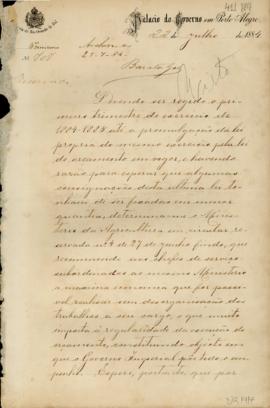 Palacio do Governo em Porto Alegre,
22 de julho de 1884
Nº
Reservado
Devendo ser regido o pri-
meiro trimestre do exercicio de
1884-1885 até a promulgação da lei
propria do mesmo exercicio pela lei
do orçamento em vigor, e havendo
razão para esperar que algumas
consignações desta ultima lei te-
nham de ser fixadas em menor
quantia, determinou o Minis-
terio da Agricultura em circular re-
servada nº 4 de 27 de junho findo, que
recommende aos chefes de serviço
subordinados ao mesmo Ministerio
a maxima economia que for possi-
vel realisar sem desorganisação dos
trabalhos a seu cargo, o que muito
importa á regularidade da execução do
orçamento, constituindo objecto em
que o Governo Imperial põe todo o em-
penho. Espero, portanto, que por